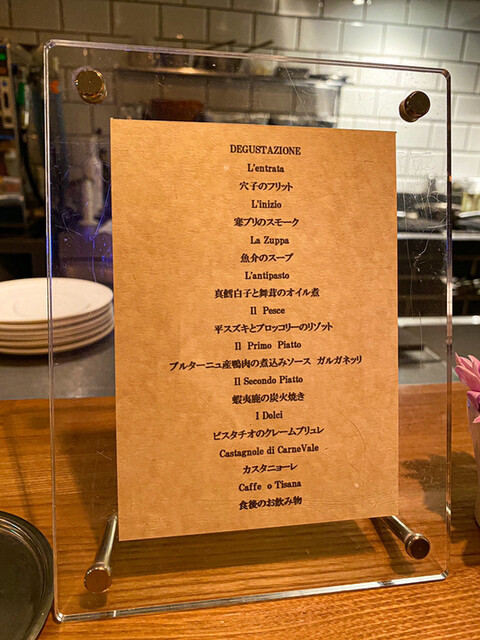 DEGUSTAZIONE
L'entrata
穴子のフリット
L'inizio
寒ブリのスモーク
La Zuppa
魚介のスープ
L'antipasto
真鱈白子と舞茸のオイル煮
Il Pesce
平スズキとブロッコリーのリゾット
Il Primo Piatto
ブルターニュ産鴨肉の煮込みソース ガルガネッリ
Il Secondo Piatto
蝦夷鹿の炭火焼き
I Dolci
ピスタチオのクレームブリュレ
Castagnole di CarneVale
カスタニョーレ
Caffe o Tisana
食後のお飲み物